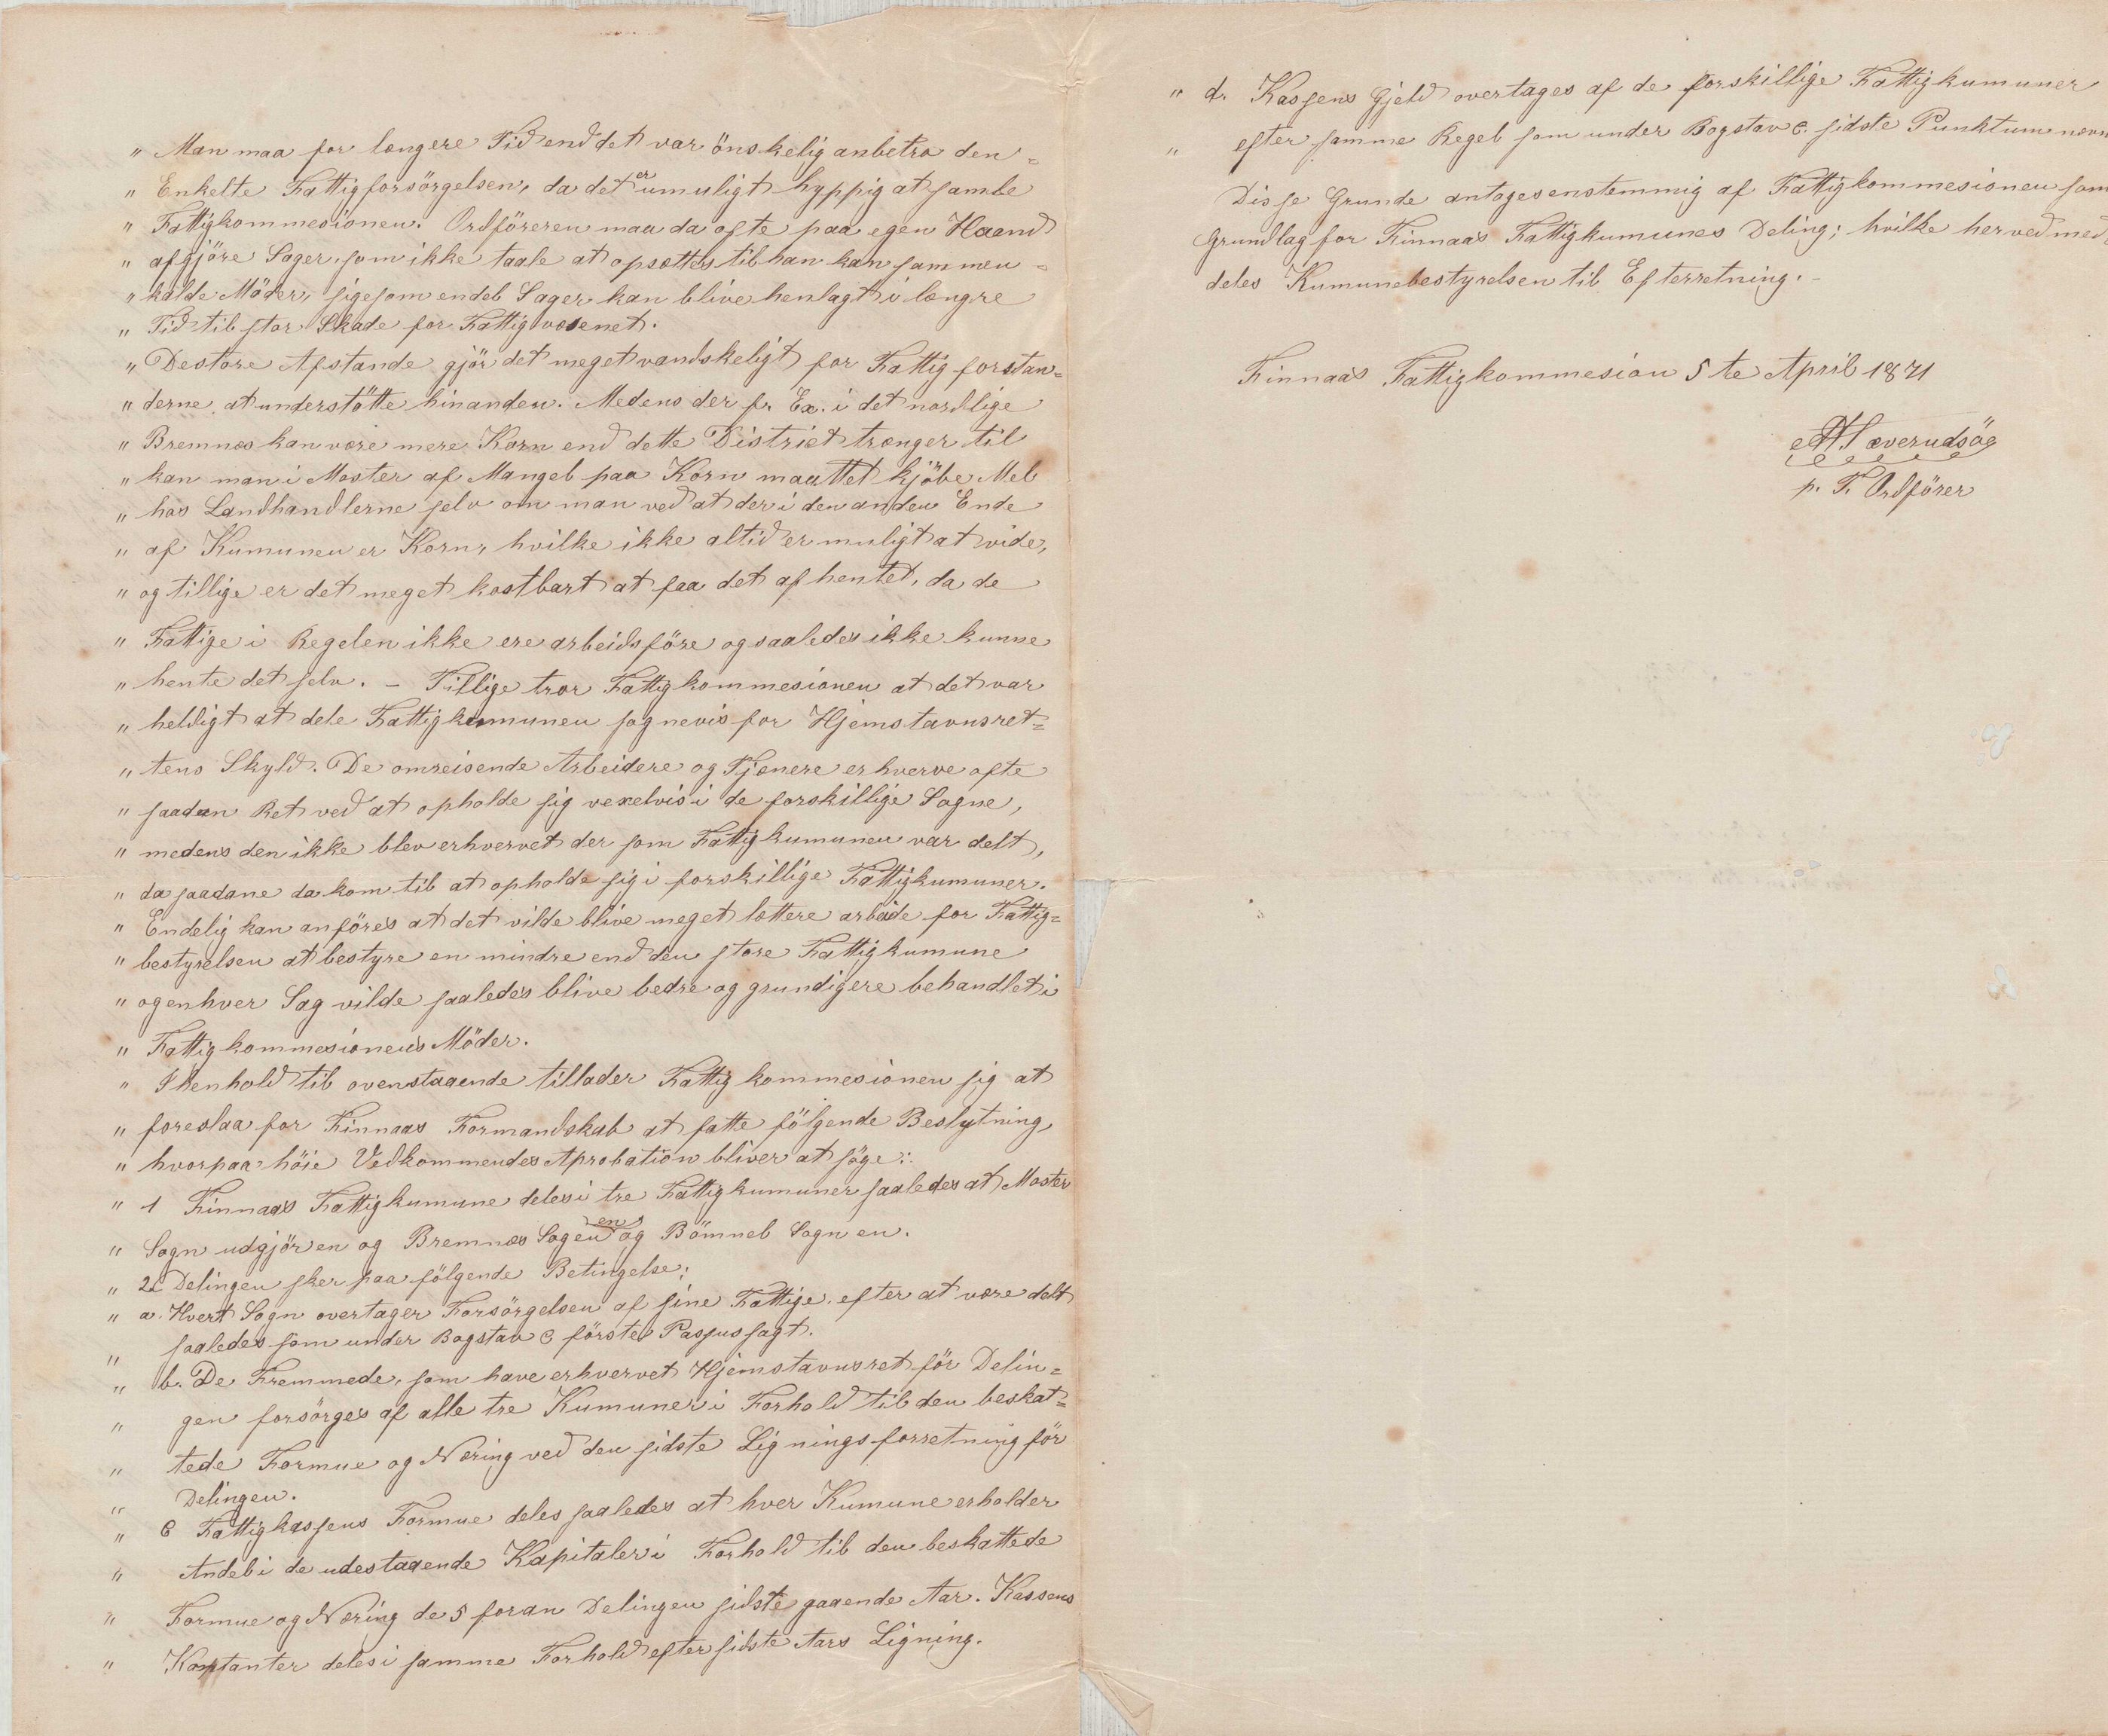 " Man maa for længere Tid end det var önskelig anbetro den=
" Enkelte Fattigforsörgelsen, da det er umuligt hyppig at samle
" Fattigkommesionen. Ordföreren maa da ofte paa egen Haand
" afgjöre Sager, som ikke taale at opsættes til han kan sammen=
" kalde Möder, ligesom endel Sager kan blive henlagt i længre
" Tid til stor Skade for Fattigvæsenet.
" De store Afstande gjör det meget vanskeligt for Fattigforstan=
" derne at understötte hinanden. Medens der f. Ex. i det nordlige
" Bremnæs kan være mere Korn end dette District trænger til
" kan man i Moster af Mangel paa Korn maattet kjöbe Mel
" hos Landhandlerne selv om man ved at der i den anden Ende
" af Kumunen er Korn, hvilke ikke altid er muligt at vide,
" og tillige er det meget kostbart at faa det afhentet, da de
" Fattige i Regelen ikke ere arbeidsföre og saaledes ikke kunne
" hente det selv. – Tillige tror Fattigkommesionen at det var
" heldigt at dele Fattigkumunen sognevis for Hjemstavnsret=
" tens Skyld. De omreisende Arbeidere og Tjenere erhverve ofte
" saadan Ret ved at opholde sig vexelvis i de forskillige Sogne,
" medens den ikke blev erhvervet der som Fattigkumunen var delt,
" da saadane da kom til at opholde sig i forskillige Fattigkumuner.
" Endelig kan anföres at det vilde blive meget lættere arbeide for Fattig=
" bestyrelsen at bestyre en mindre end den store Fattigkumune
" og enhver Sag vilde saaledes blive bedre og grundigere behandlet i
" Fattigkommesionens Möder.
" I henhold til ovenstaaende tillader Fattigkommesionen sig at
" foreslaa for Finnaas Formandskab at fatte fölgende Beslutning,
" hvorpaa höie Vedkommendes Aprobation bliver at söge:
" 1 Finnaas Fattigkumune deles i tre Fattigkumuner saaledes at Moster
" Sogn udgjör en og Bremnæs Sogen en og Bömmel Sogn en.
" 2 Delingen sker paa fölgende Betingelse:
" a. Hvert Sogn overtager Forsörgelsen af sine Fattige efter at være delt
" saaledes som under Bogstav C förste Passus sagt.
" b. De Fremmede, som have erhvervet Hjemstavnsret för Delin=
" gen forsörges af alle tre Kumuner i Forhold til den beskat=
" tede Formue og Næring ved den sidste Ligningsforretning för
" Delingen.
" C Fattigkassens Formue deles saaledes at hver Kumune erholder
" Andel i de udestaaende Kapitaler i Forhold til den beskattede
" Formue og Næring de 5 foran Delingen sidste gaaende Aar. Kassens
" Kontanter deles i samme Forhold efter sidste Aars Ligning.
" d. Kassens Gjeld overtages af de forskillige Fattigkumuner
" efter samme Regel som under Bogstav C. sidste Punktum nævn
Disse Grunde antoges enstemmig af Fattigkommesionen som
Grundlag for Finnaas Fattigkumunes Deling; hvilke herved med
deles Kumunebestyrelsen til Efterretning. –
Finnaas Fattigkommesion 5te April 1871
p. T. Ordförer